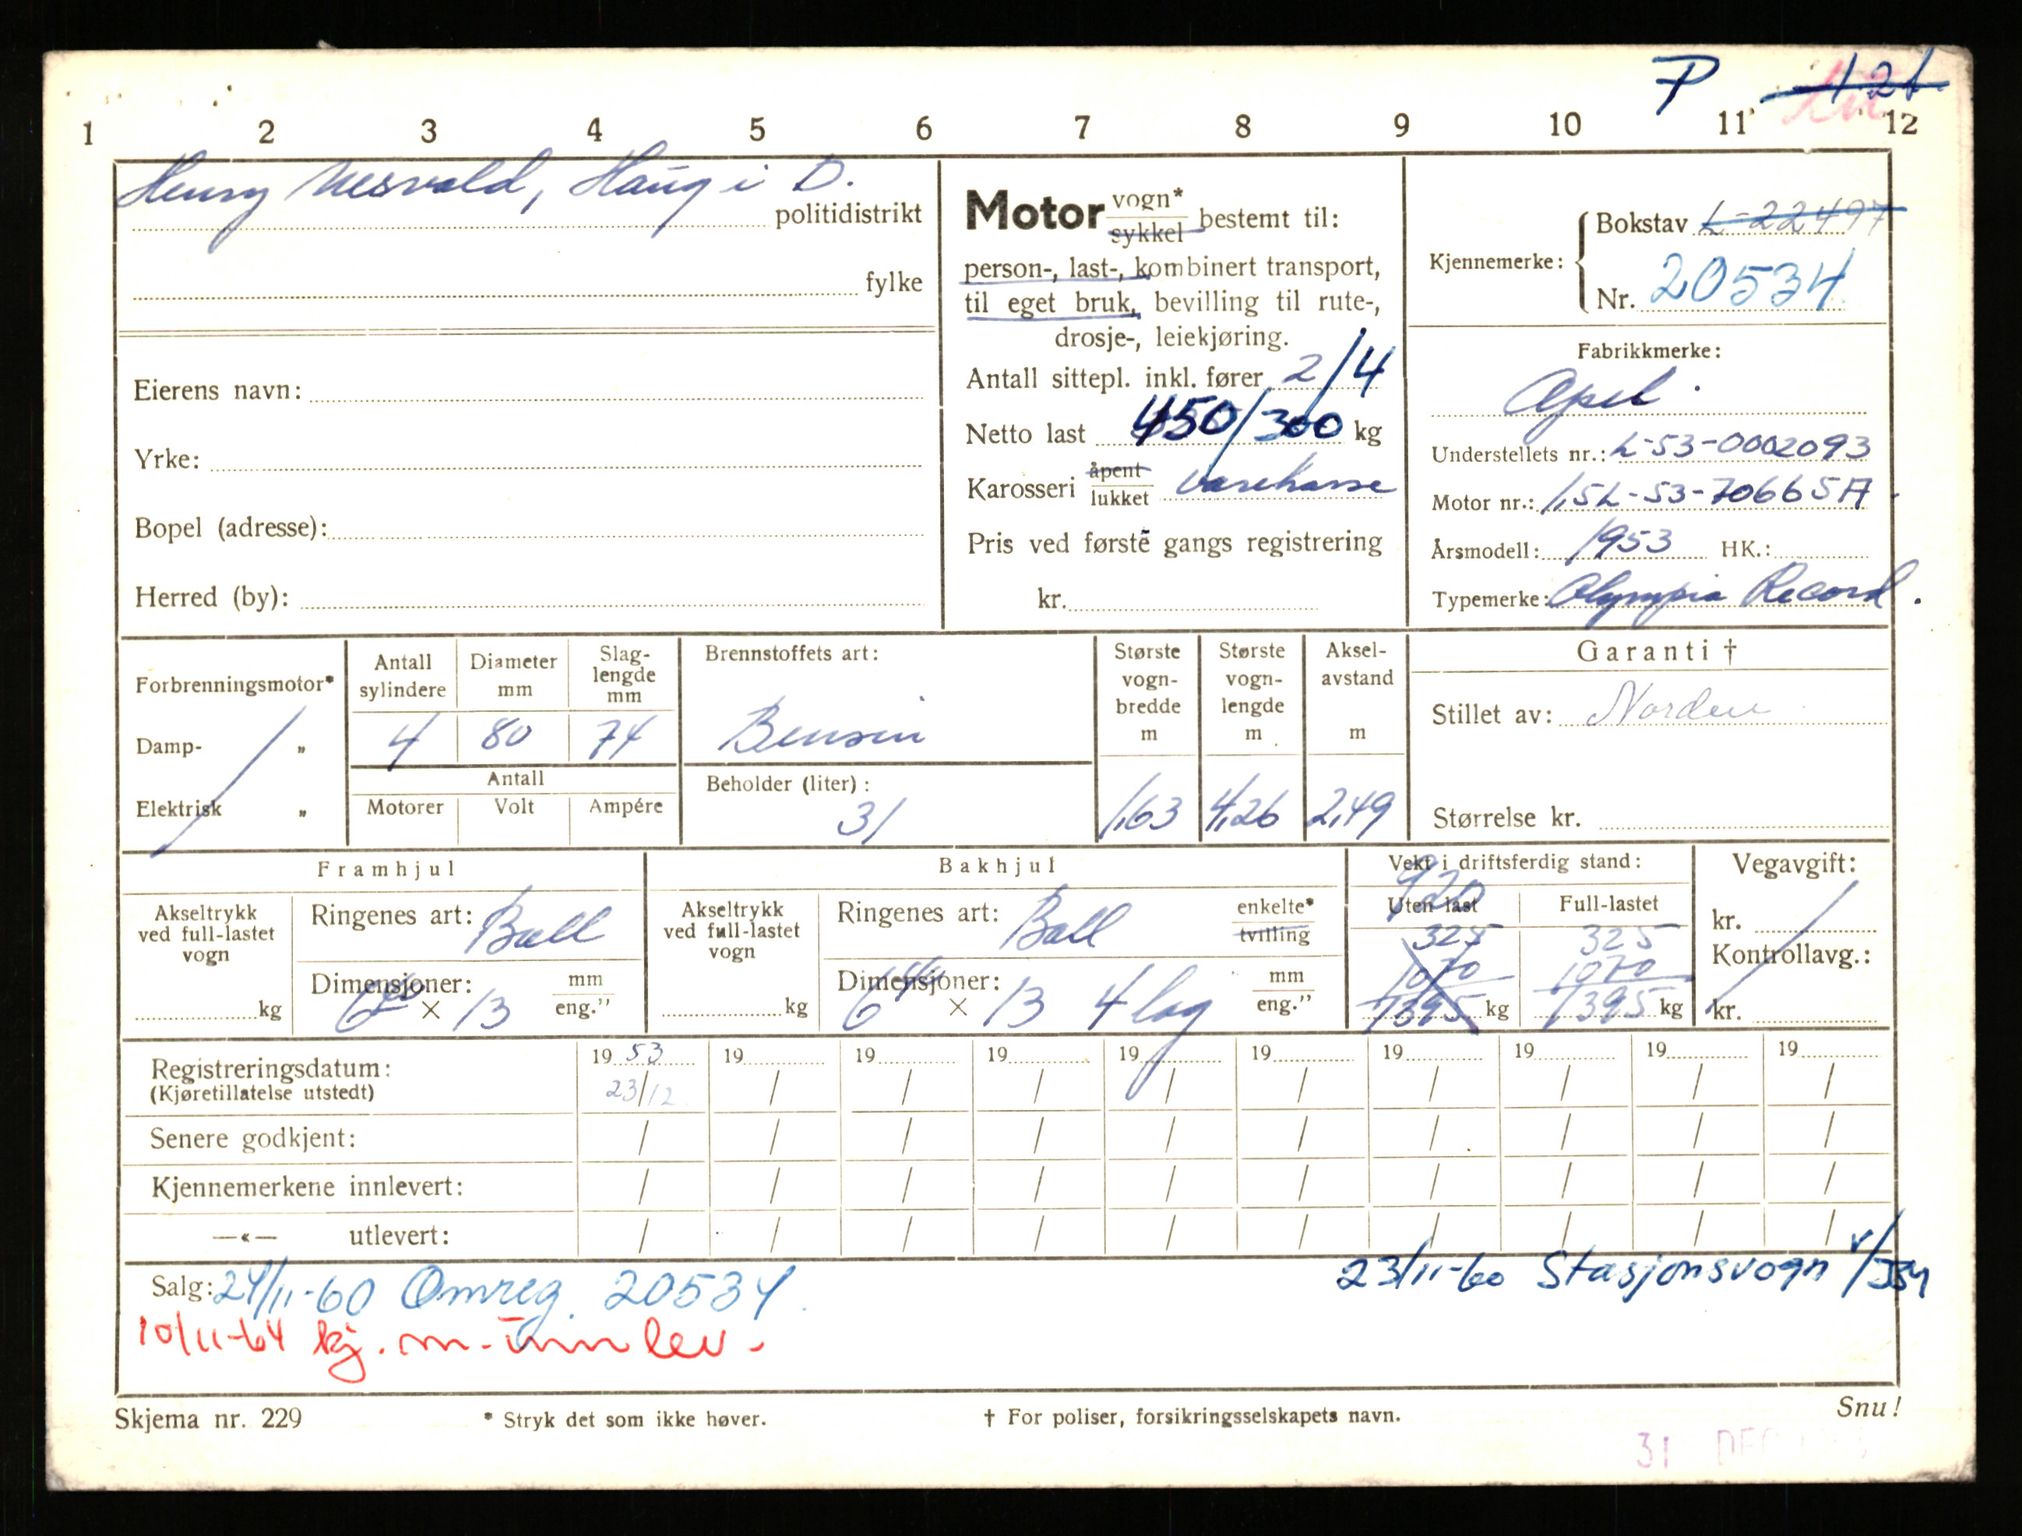 P 421
1 2 3 4 5 6 7 8 9 10 11 12
Henry Nesvold, Haug i D.
politidistrikt
fylke
Eierens navn:
Yrke:
Bopel (adresse):
Herred (by):
Motor vogn* sykkel bestemt til:
person-, last-, kombinert transport,
til eget bruk, bevilling til rute-,
drosje-, leiekjøring.
Antall sittepl. inkl. fører 2/4
Netto last 450/300 kg
Karosseri åpent lukket varekasse
Pris ved første gangs registrering
kr.
Kjennemerke: Bokstav L-22497
Nr. 20534
Fabrikkmerke:
Opel.
Understellets nr.: L-53-0002093
Motor nr.: 1,5L-53-70665A
Årsmodell: 1953 HK.:
Typemerke: Olympia Record.
Forbrenningsmotor*
Damp- „
Elektrisk „
Antall sylindere
4
Diameter mm
80
Slag-lengde mm
74
Antall
Motorer Volt Ampére
Brennstoffets art:
Bensin
Beholder (liter):
31
Største vogn-bredde m
1,63
Største vogn-lengde m
4,26
Aksel-avstand m
2,49
Garanti †
Stillet av: Norden
Størrelse kr.
Framhjul
Akseltrykk
ved full-lastet
vogn
kg
Ringenes art: Ball
Dimensjoner: mm
6 × 13 eng.”
Bakhjul
Akseltrykk
ved full-lastet
vogn
kg
Ringenes art: Ball enkelte* tvilling
Dimensjoner: mm
6 × 13 4 lag eng.”
Vekt i driftsferdig stand:
920
Uten last Full-lastet
325 325
1070 1070
1395 kg 1395 kg
Vegavgift:
kr.
Kontrollavg.:
kr.
Registreringsdatum: 1953 19 19 19 19 19 19 19 19 19
(Kjøretillatelse utstedt) 23/12 / / / / / / / / /
Senere godkjent: / / / / / / / / / /
Kjennemerkene innlevert: / / / / / / / / / /
—«— utlevert: / / / / / / / / / /
Salg: 24/11-60 Omreg. 20534. 23/11-60 Stasjonsvogn
10/11-64 kj. m. innlev.
Skjema nr. 229 * Stryk det som ikke høver. † For poliser, forsikringsselskapets navn. Snu!
31 DEC